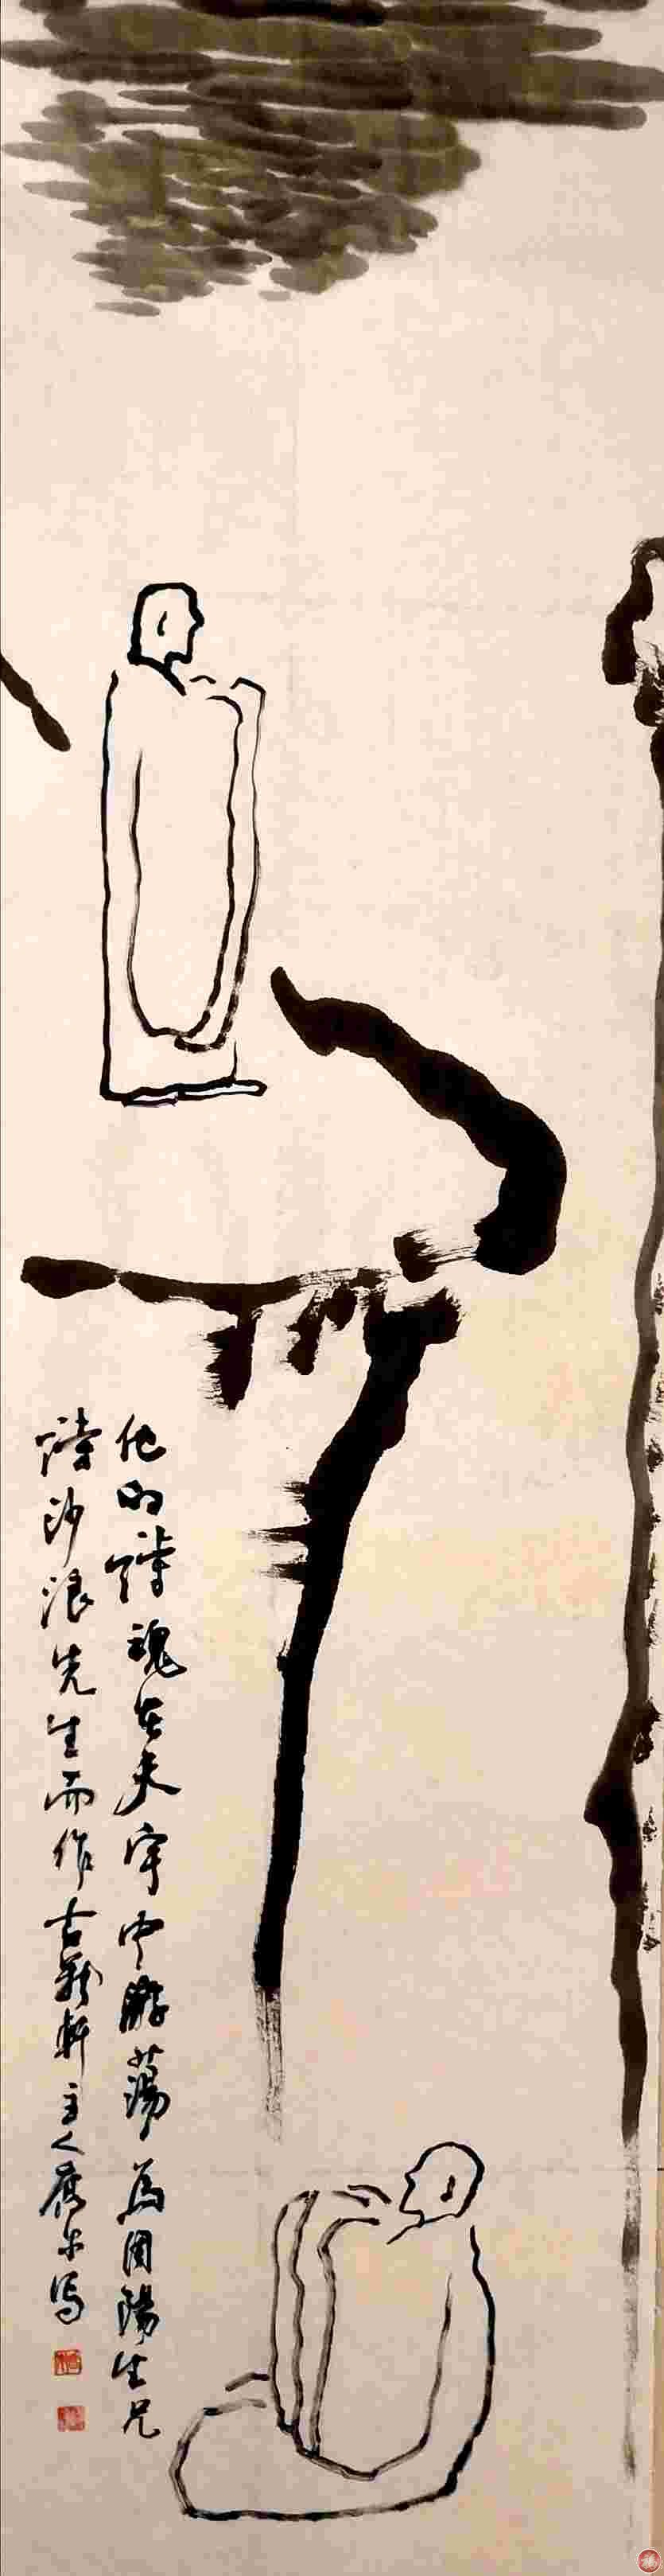 他的詩魂在天宇中游蕩 為周陽生兄
詩沙浪先生而作 古龍軒主人 寫